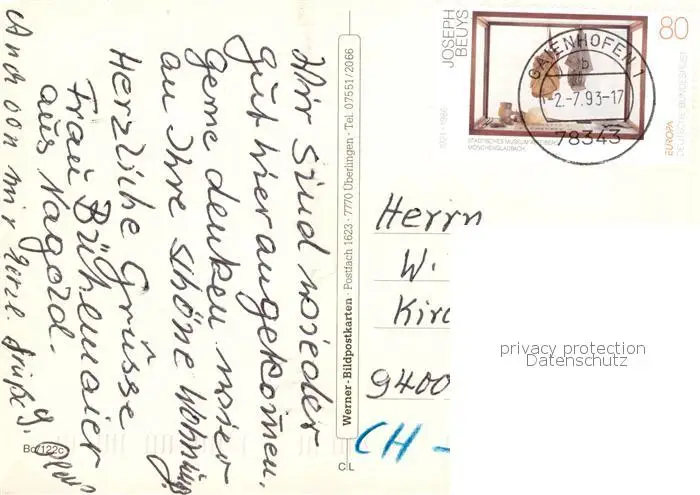 Wir sind wieder
gut hier angekommen.
gerne denken wir
an Ihre schöne Wohnung
Herzliche Grüsse
Frau Bühlmaier
aus Nagold.
Auch von mir herzl Grüße
Werner-Bildpostkarten · Postfach 1623 · 7770 Überlingen · Tel. 07551/2066
Bo/122c
CL
JOSEPH
BEUYS
1921-1986
80
STÄDTISCHES MUSEUM ABTEIBERG
MÖNCHENGLADBACH
EUROPA
DEUTSCHE BUNDESPOST
GAIENHOFEN 1
b
-2.-7.93-17
78343
Herrn
W.
Kirc
9400
CH -
privacy protection
Datenschutz